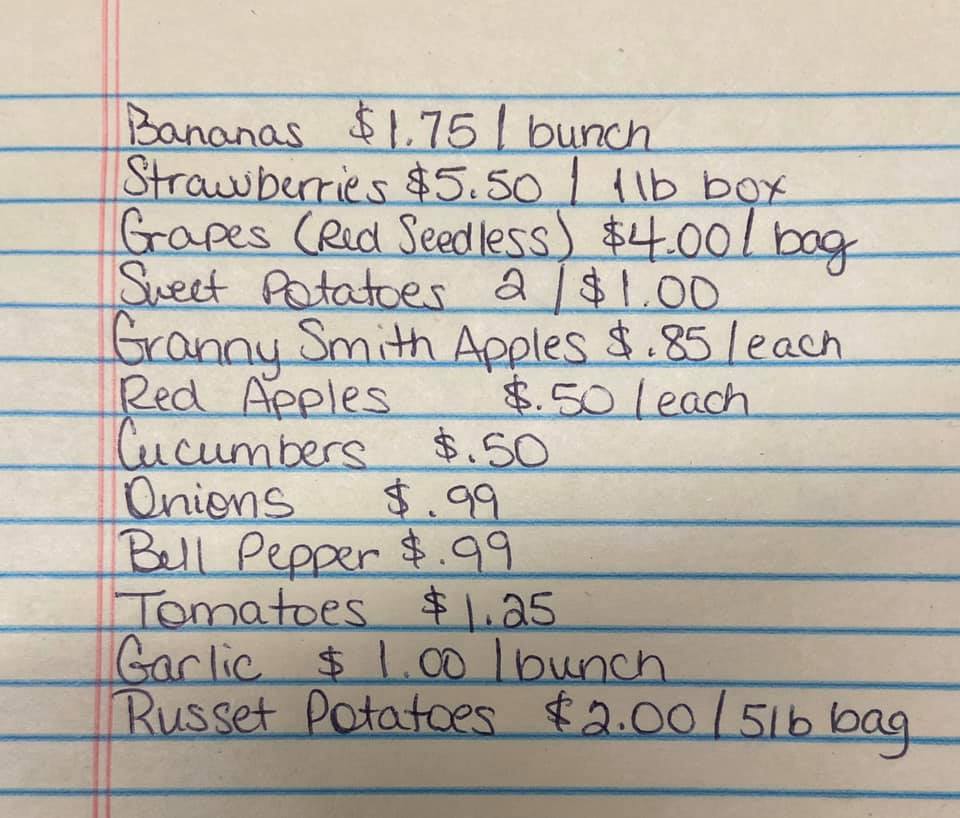 Bananas $1.75 / bunch
Strawberries $5.50 / 1lb box
Grapes (Red Seedless) $4.00 / bag
Sweet Potatoes 2 / $1.00
Granny Smith Apples $.85 / each
Red Apples $.50 / each
Cucumbers $.50
Onions $.99
Bell Pepper $.99
Tomatoes $1.25
Garlic $1.00 / bunch
Russet Potatoes $2.00 / 5lb bag